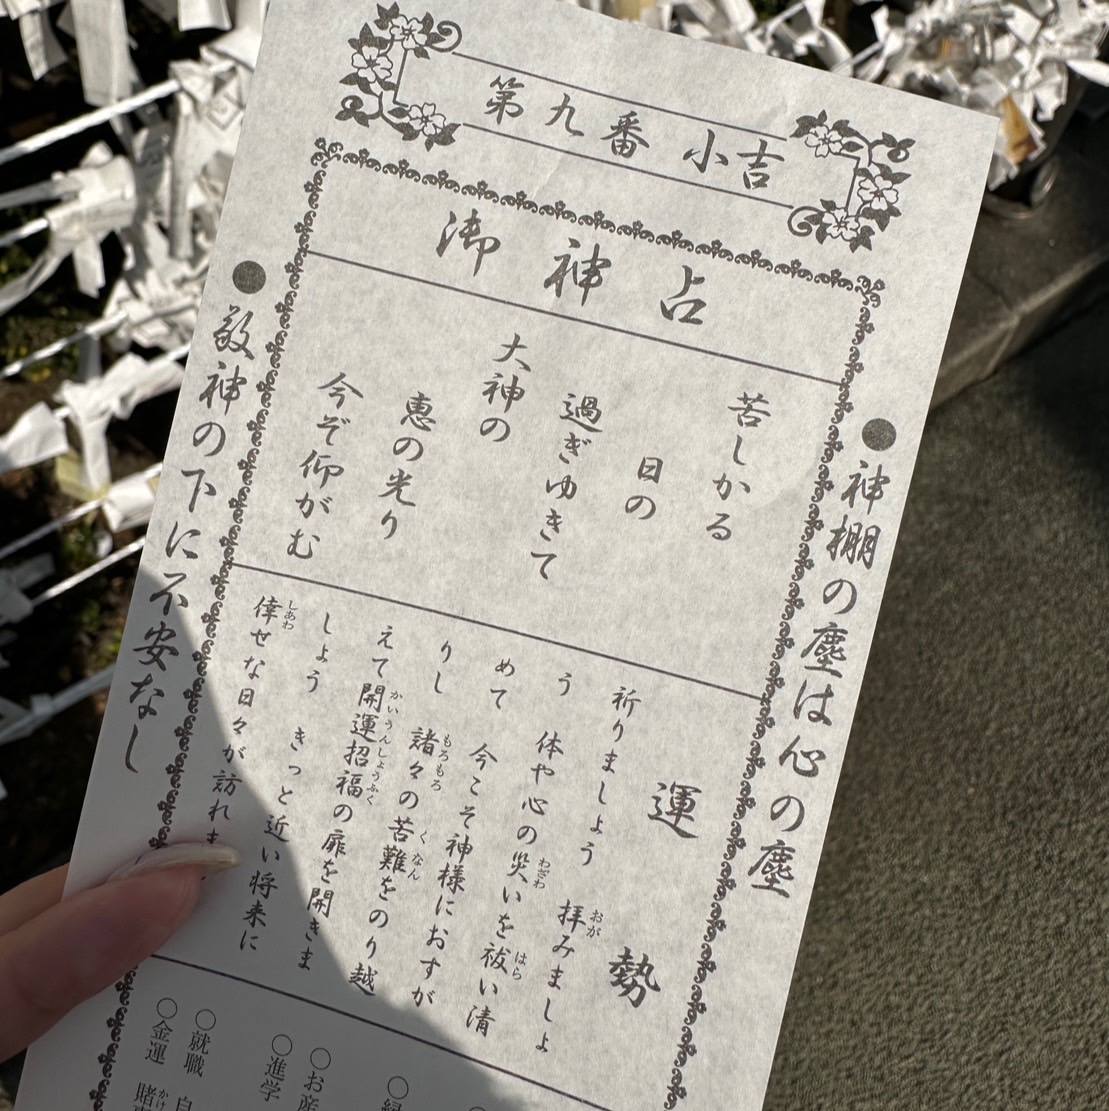 第九番 小吉
御神占
●神棚の塵は心の塵
苦しかる
日の
過ぎゆきて
大神の
恵の光り
今ぞ仰がむ
運勢
祈りましょう 拝みましょ
おが
う 体や心の災いを祓い清
わざわ
はら
めて 今こそ神様におすが
りし 諸々の苦難をのり越
もろもろ
くなん
えて開運招福の扉を開きま
かいうんしょうふく
しょう きっと近い将来に
倖せな日々が訪れま
しあわ
●敬神の下に不安なし
○お産
○進学
○就職 自
○金運 賭
かけ